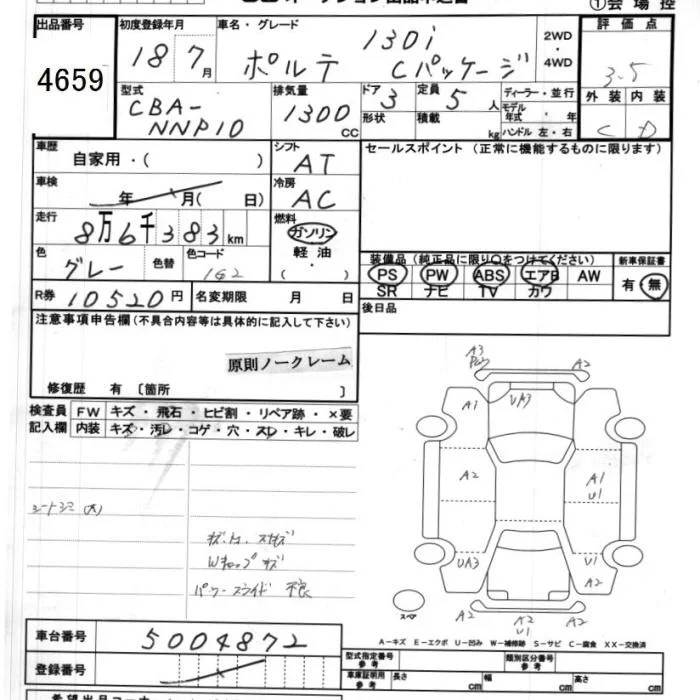 ①会場控
出品番号
4659
初度登録年月
18 7月
車名・グレード
130i
ポルテ Cパッケージ
2WD
・
4WD
評価点
3.5
外装 内装
C D
型式
CBA-
NNP10
排気量
1300
CC
ドア 3
形状
定員 5 人
積載 kg
ディーラー・並行
モデル
年式 ・ 年
ハンドル 左・右
車歴
自家用・( )
シフト
AT
セールスポイント (正常に機能するものに限ります)
車検
年 月( 日)
冷房
AC
走行
8万6千383km
燃料
ガソリン
軽油
( ・ )
色
グレー
色替
色コード
162
装備品 (純正品に限り○をつけてください)
PS PW ABS エアB AW
SR ナビ TV カワ
新車保証書
有・無
R券 10520円
名変期限 月 日
後日品
注意事項申告欄(不具合内容等は具体的に記入して下さい)
原則ノークレーム
修復歴 有 〔箇所 〕
検査員
記入欄
FW キズ・飛石・ヒビ割・リペア跡・×要
内装 キズ・汚レ・コゲ・穴・スレ・キレ・破レ
シートシミ(大)
キズ.
Wキャップ キズ
パワースライド 不良
A3
A2
A1
UA3
A2
A1
U1
UA3
U1
A2
スペア
A2
A2
U1
A2
A-キズ E-エクボ U-凹み W-補修跡 S-サビ C-腐食 XX-交換済
車台番号
5004872
登録番号
型式指定番号
参考
類別区分番号
参考
車庫証明用
参考
長さ cm
幅 cm
高さ cm